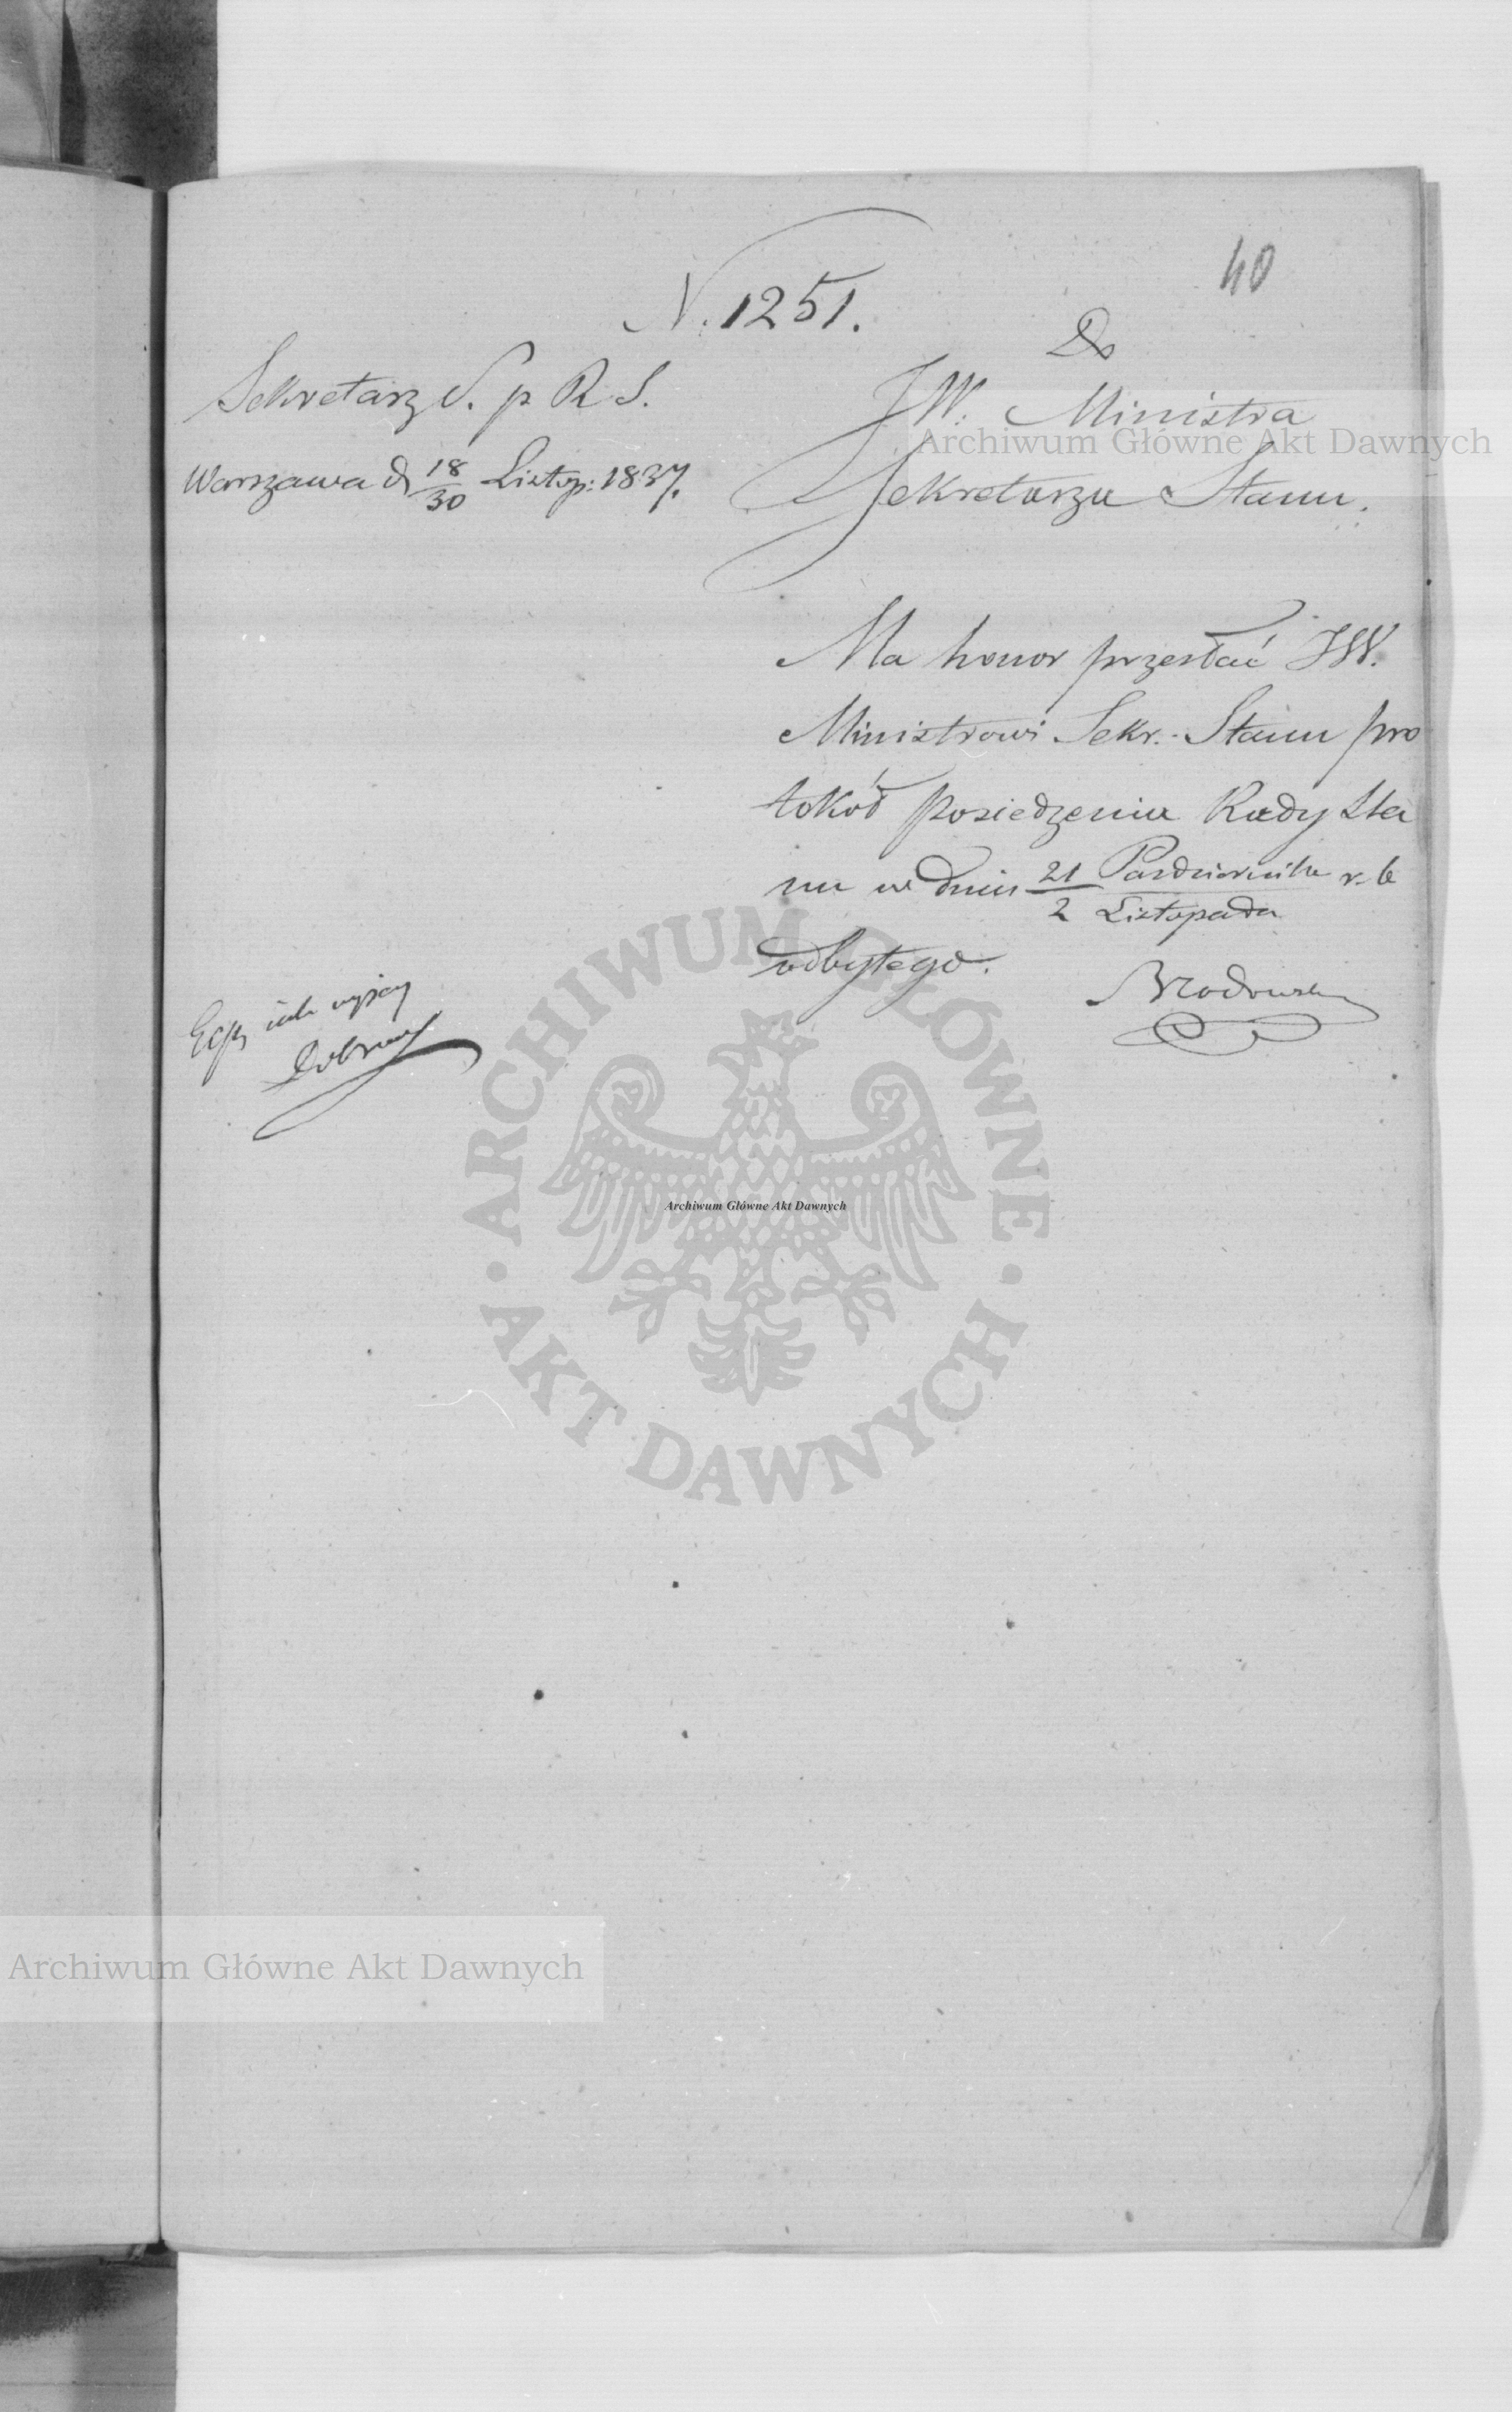 40
N. 1251.
Sekretarz S. p R. S.
Warszawa d 18/30 Listop: 1837.
Do
JW. Ministra
Sekretarza Stanu.
Ma honor przesłać JW.
Ministrowi Sekr. Stanu pro
tokół posiedzenia Rady Sta
nu w dniu 21 Pazdziernika / 2 Listopada r. b
odbytego.
Brodowski
Archiwum Główne Akt Dawnych
ARCHIWUM GŁÓWNE
Archiwum Główne Akt Dawnych
AKT DAWNYCH
Archiwum Główne Akt Dawnych